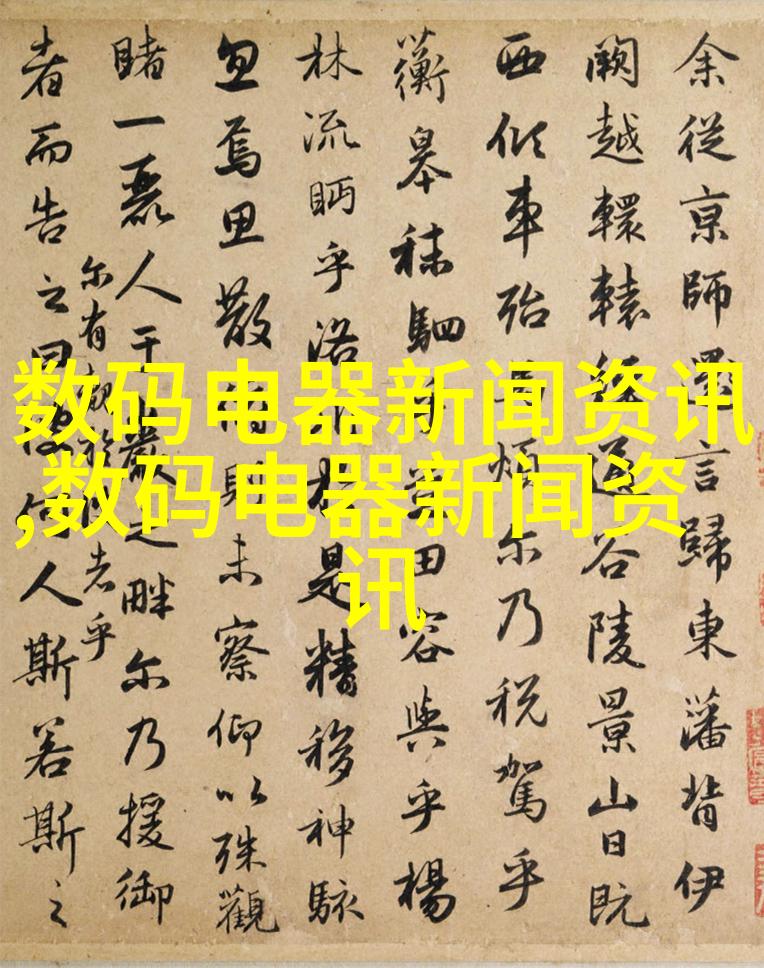 数码电器新闻资讯
,数码电器新闻资
讯
余從京師還言歸東藩背伊
闕越轘轅經通谷陵景山日既
西傾車殆煩尓乃稅駕乎
蘅皋秣駟乎田容與乎楊
林流眄乎洛於是精移神駭
忽焉思散則未察仰以殊觀
睹一麗人于巖之畔尓乃援御
者而告之曰何人斯若斯之
尓有觀於者乎